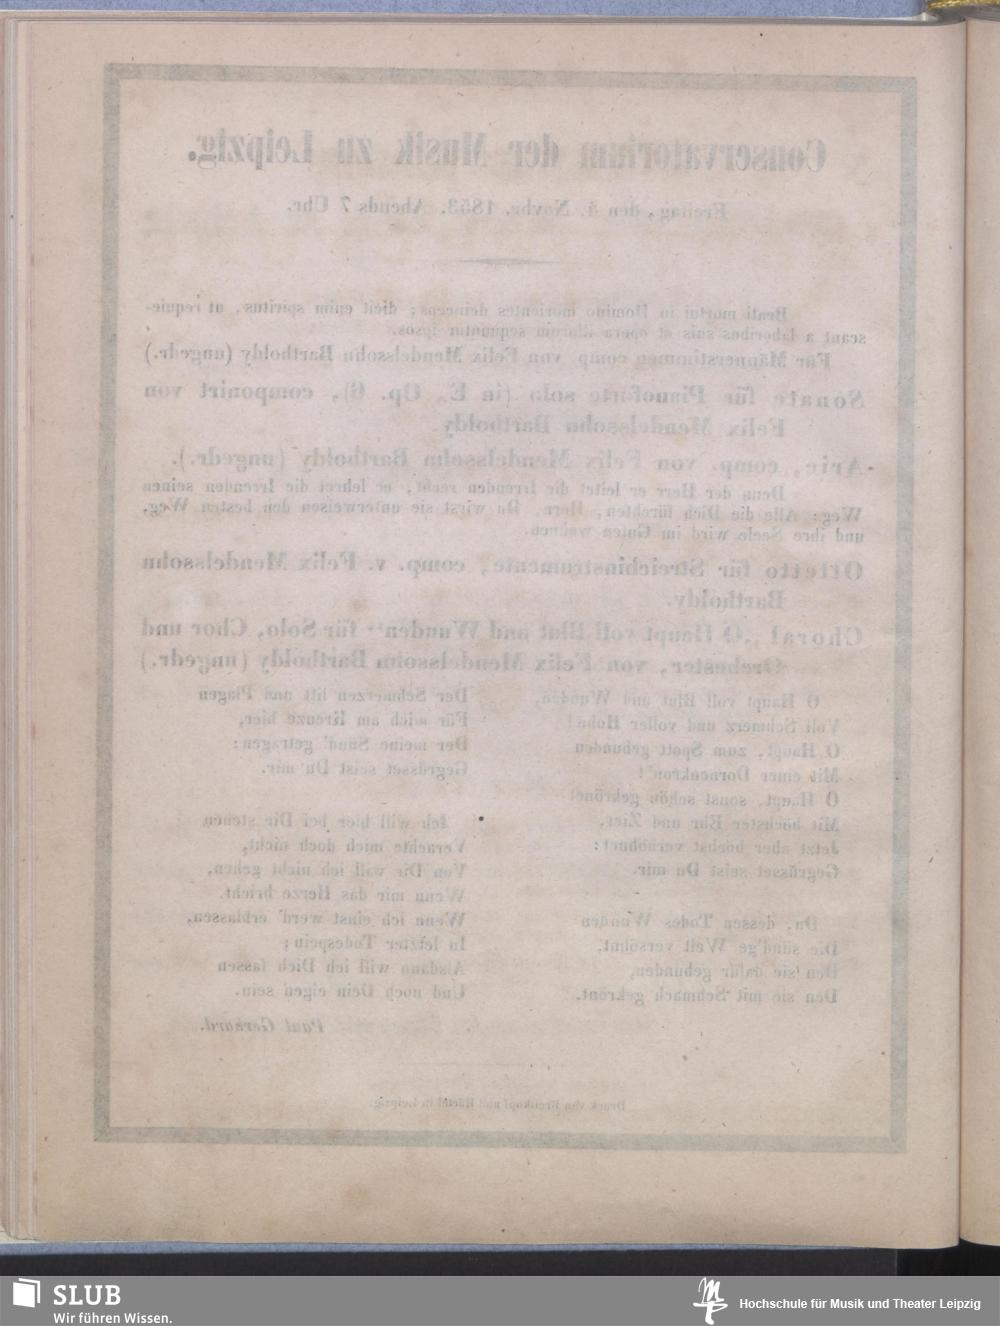 Conservatorium der Musik zu Leipzig.
Freitag, den 4. Novbr. 1853. Abends 7 Uhr.
Beati mortui in Domino morientes deinceps; dicit enim spiritus, ut requie-
scant a laboribus suis et opera illorum sequuntur ipsos.
Für Männerstimmen comp. von Felix Mendelssohn Bartholdy (ungedr.)
Sonate für Pianoforte solo (in E, Op. 6), componirt von
Felix Mendelssohn Bartholdy.
Arie, comp. von Felix Mendelssohn Bartholdy (ungedr.).
Denn der Herr er leitet die Irrenden recht, er lehret die Irrenden seinen
Weg: Alle die Dich fürchten, Herr, Du wirst sie unterweisen den besten Weg,
und ihre Seele wird im Guten wohnen.
Ottetto für Streichinstrumente, comp. v. Felix Mendelssohn
Bartholdy.
Choral „O Haupt voll Blut und Wunden“ für Solo, Chor und
Orchester, von Felix Mendelssohn Bartholdy (ungedr.)
O Haupt voll Blut und Wunden,
Voll Schmerz und voller Hohn!
O Haupt, zum Spott gebunden
Mit einer Dornenkron'!
O Haupt, sonst schön gekrönet
Mit höchster Ehr und Zier,
Jetzt aber höchst verhöhnet:
Gegrüsset seist Du mir.
Du, dessen Todes Wunden
Die sünd'ge Welt versöhnt,
Den sie dafür gebunden,
Den sie mit Schmach gekrönt.
Der Schmerzen litt und Plagen
Für mich am Kreuze hier,
Der meine Sünd' getragen:
Gegrüsset seist Du mir.
Ich will hier bei Dir stehen
Verachte mich doch nicht,
Von Dir will ich nicht gehen,
Wenn mir das Herze bricht.
Wenn ich einst werd' erblassen,
In letzter Todespein;
Alsdann will ich Dich fassen
Und noch Dein eigen sein.
Paul Gerhard.
Druck von Breitkopf und Härtel in Leipzig.
SLUB
Wir führen Wissen.
Hochschule für Musik und Theater Leipzig